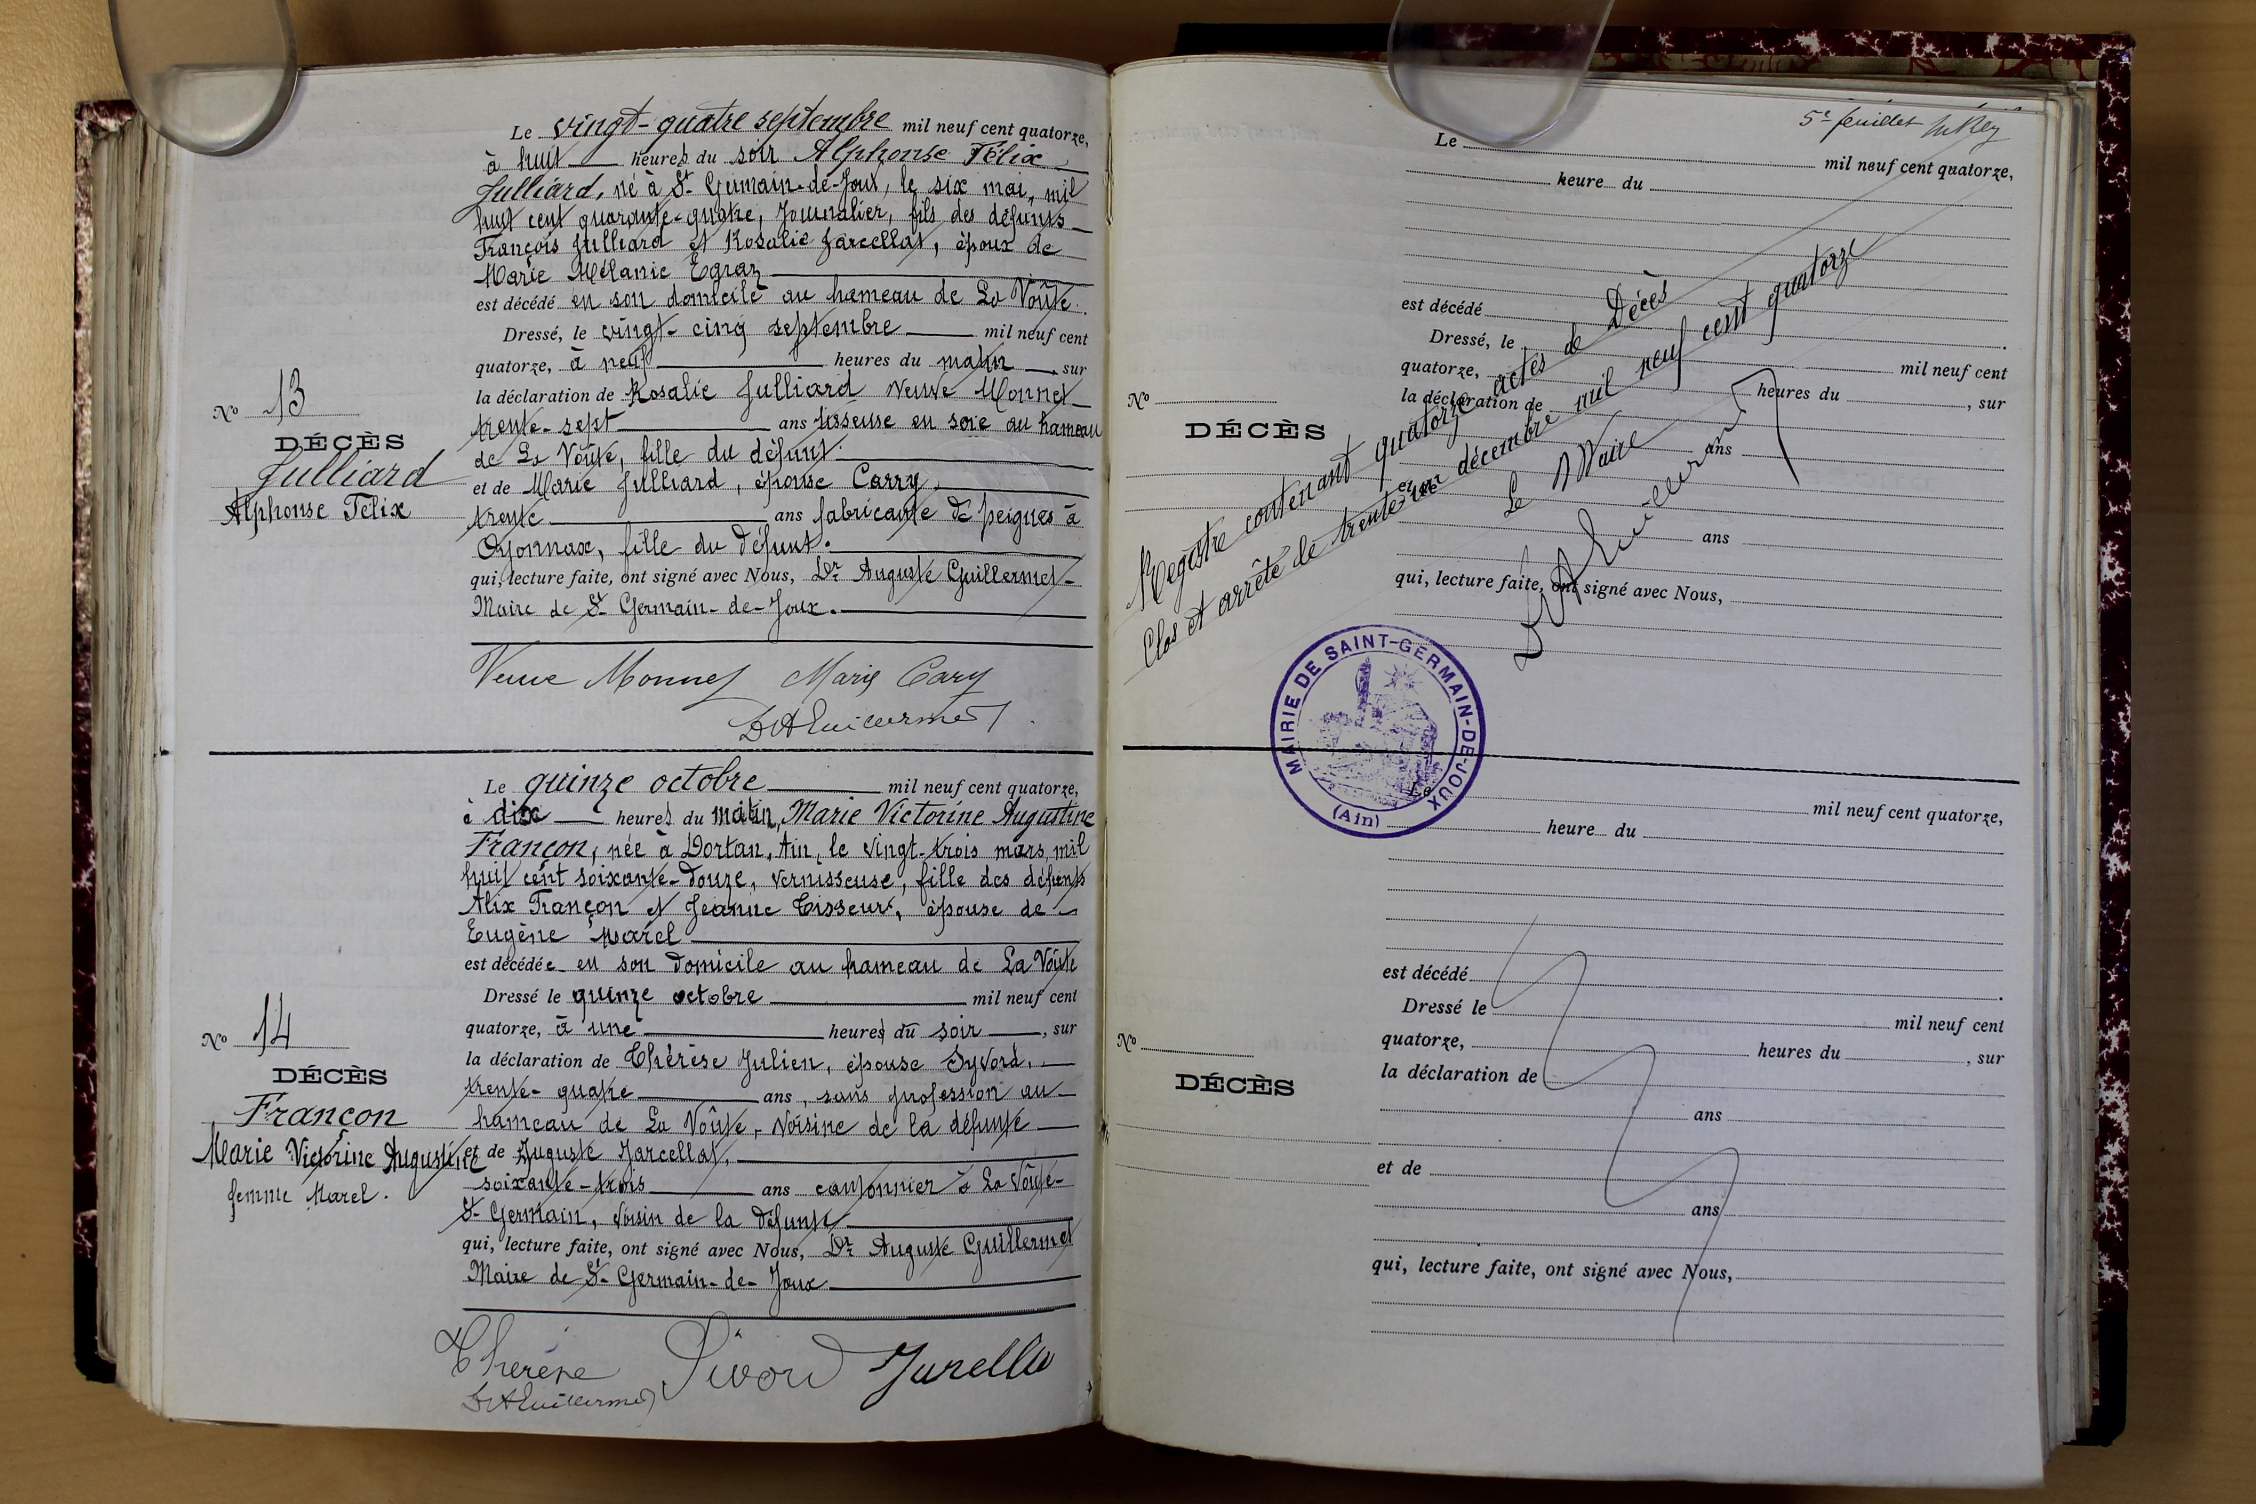 Le vingt-quatre septembre mil neuf cent quatorze,
à huit heures du soir Alphonse Félix
Julliard, né à St Germain-de-Joux, le six mai, mil
huit cent quarante-quatre, Journalier, fils des défunts
François Julliard et Rosalie Jarcellat, époux de
Marie Mélanie Egraz
est décédé en son domicile au hameau de La Voûte.
Dressé, le vingt-cinq septembre mil neuf cent
quatorze, à neuf heures du matin, sur
la déclaration de Rosalie Julliard veuve Monnet
trente-sept ans tisseuse en soie au hameau
de La Voûte, fille du défunt.
et de Marie Julliard, épouse Carry.
trente ans fabricante de peignes à
Oyonnax, fille du défunt.
qui, lecture faite, ont signé avec Nous, Dr Auguste Guillermet
Maire de St Germain-de-Joux.
No 13
DÉCÈS
Julliard
Alphonse Felix
Veuve Monnet Marie Cary
Dr A Guillermet
Le quinze octobre mil neuf cent quatorze,
à dix heures du matin, Marie Victorine Augustine
Françon, née à Dortan, Ain, le vingt-trois mars, mil
huit cent soixante-douze, vernisseuse, fille des défunts
Alix Françon et Jeanne Tisseur, épouse de
Eugène Marel
est décédée en son domicile au hameau de La Voûte
Dressé le quinze octobre mil neuf cent
quatorze, à une heures du soir, sur
la déclaration de Thérèse Julien, épouse Syvord,
trente-quatre ans, sans profession au
hameau de La Voûte, voisine de la défunte
et de Auguste Jarcellat,
soixante-trois ans cantonnier à La Voûte
St Germain, voisin de la défunte
qui, lecture faite, ont signé avec Nous, Dr Auguste Guillermet
Maire de St Germain-de-Joux
No 14
DÉCÈS
Françon
Marie Victorine Augustine
femme Marel.
Therése Sivord
Dr A Guillermet
5e feuillet
Le mil neuf cent quatorze,
heure du
est décédé
Dressé, le mil neuf cent
quatorze, heures du , sur
la déclaration de
ans
et de
ans
qui, lecture faite, ont signé avec Nous,
No
DÉCÈS
Registre contenant quatorze actes de Décès
Clos et arrêté le trente et un décembre mil neuf cent quatorze
Le Maire
Dr A Guillermet
MAIRIE DE SAINT-GERMAIN-DE-JOUX
(Ain)
Le mil neuf cent quatorze,
heure du
est décédé
Dressé le mil neuf cent
quatorze, heures du , sur
la déclaration de
ans
et de
ans
qui, lecture faite, ont signé avec Nous,
No
DÉCÈS